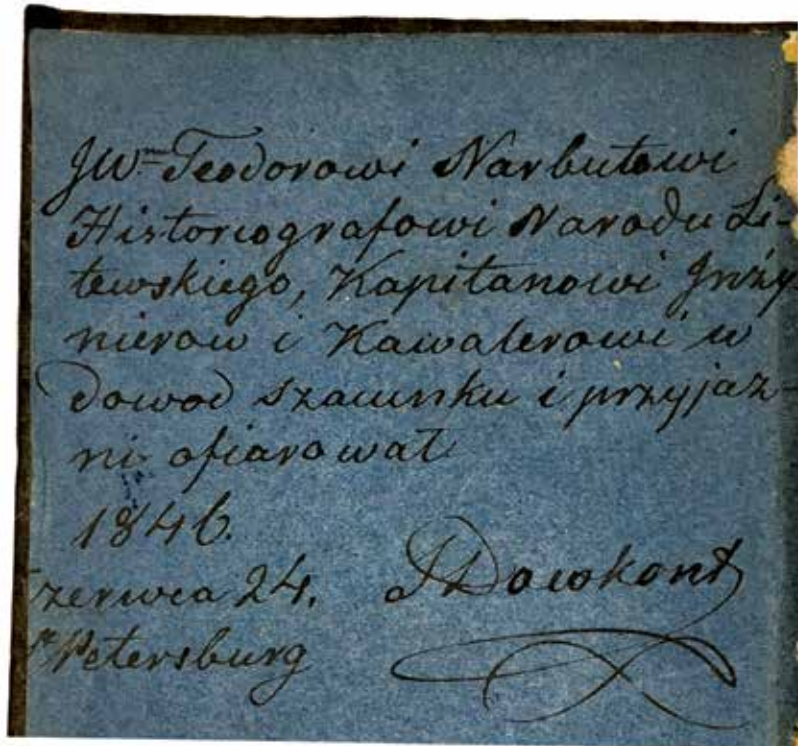 JWmu Teodorowi Narbutowi
Historiografowi Narodu Li-
tewskiego, Kapitanowi Jnży
nierow i Kawalerowi w
dowod szacunku i przyjaź-
ni ofiarował
1846.
Czerwca 24. SDowkont
Petersburg